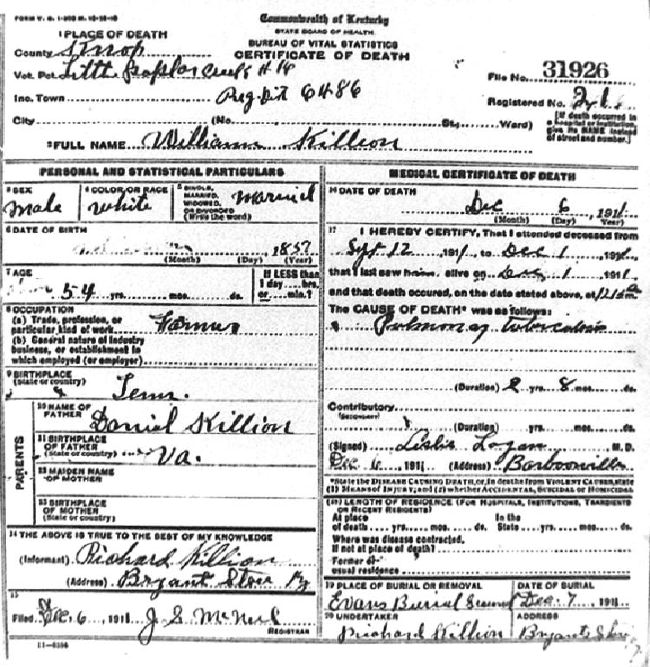 FORM V. S. 1-
Commonwealth of Kentucky
STATE BOARD OF HEALTH.
BUREAU OF VITAL STATISTICS
CERTIFICATE OF DEATH
1 PLACE OF DEATH
County Knox
Vot. Pct. Little Poplar Creek # 14
File No. 31926
Inc. Town Reg Dist 6486
Registered No.
City (No. St., Ward)
[If death occurred in a hospital or institution, give its NAME instead of street and number.]
2 FULL NAME William Killion
PERSONAL AND STATISTICAL PARTICULARS
3 SEX Male
4 COLOR OR RACE White
5 SINGLE, MARRIED, WIDOWED, OR DIVORCED (Write the word) Married
6 DATE OF BIRTH 1857
(Month) (Day) (Year)
7 AGE 54 yrs. mos. ds.
If LESS than 1 day hrs. or min.?
8 OCCUPATION
(a) Trade, profession, or particular kind of work Farmer
(b) General nature of industry business, or establishment in which employed (or employer)
9 BIRTHPLACE
(State or country) Tenn.
PARENTS
10 NAME OF FATHER Daniel Killion
11 BIRTHPLACE OF FATHER (State or country) Va.
12 MAIDEN NAME OF MOTHER
13 BIRTHPLACE OF MOTHER (State or country)
14 THE ABOVE IS TRUE TO THE BEST OF MY KNOWLEDGE
(Informant) Richard Killion
(Address) Bryant Store Ky
15
Filed Dec. 6, 1911 J. S. McNeil
REGISTRAR
MEDICAL CERTIFICATE OF DEATH
16 DATE OF DEATH Dec 6, 1911
(Month) (Day) (Year)
17 I HEREBY CERTIFY, That I attended deceased from
Sept 12 1911, to Dec 1 1911,
that I last saw him alive on Dec 1 1911,
and that death occured, on the date stated above, at m.
The CAUSE OF DEATH* was as follows:
Pulmonary Tuberculosis
(Duration) 2 yrs. 8 mos. ds.
Contributory
(SECONDARY)
(Duration) yrs. mos. ds.
(Signed) Leslie Logan M. D.
Dec 6, 1911 (Address) Barbourville
*State the DISEASE CAUSING DEATH, or, in deaths from VIOLENT CAUSES, state (1) MEANS OF INJURY; and (2) whether ACCIDENTAL, SUICIDAL or HOMICIDAL
18 LENGTH OF RESIDENCE (FOR HOSPITALS, INSTITUTIONS, TRANSIENTS OR RECENT RESIDENTS)
At place of death yrs. mos. ds. In the State yrs. mos. ds.
Where was disease contracted, If not at place of death?
Former or usual residence
19 PLACE OF BURIAL OR REMOVAL Evans Burial Ground
DATE OF BURIAL Dec. 7 1911
20 UNDERTAKER Richard Killion
ADDRESS Bryants Store